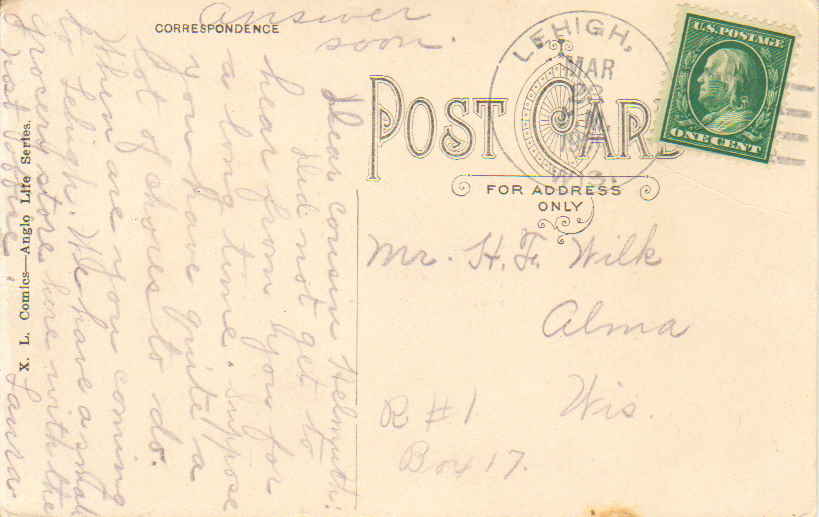 CORRESPONDENCE
answer
soon.
POST CARD
FOR ADDRESS
ONLY
LEHIGH,
MAR
WIS.
U.S. POSTAGE
ONE CENT
Dear cousin Helmuth:
Did not get to
hear from you for
a long time. Suppose
you have quite a
lot of chores to do.
When are you coming
to Lehigh. We have a small
grocery store here with the
post office. Laura
Mr. H. F. Wilk
Alma
Wis.
R #1
Box 17.
X. L. Comics—Anglo Life Series.